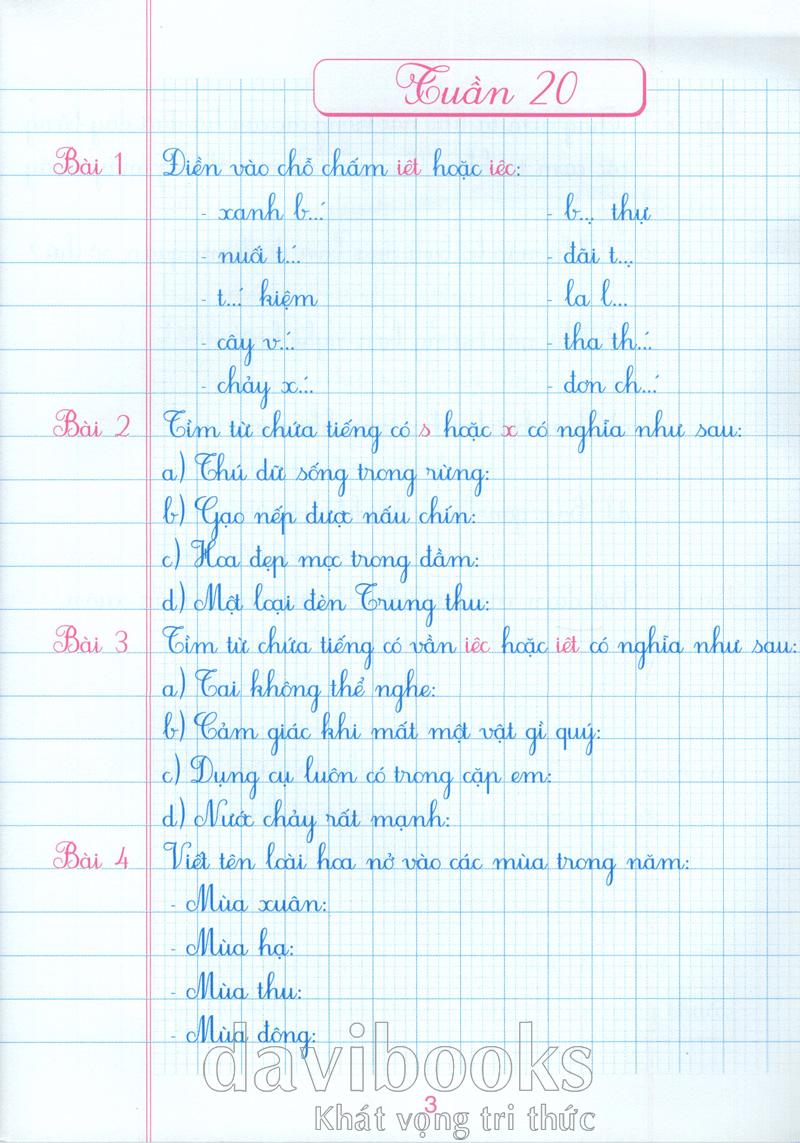 Tuần 20
Bài 1 Điền vào chỗ chấm iêt hoặc iêc:
- xanh b...́ - b...̣ thự
- nuối t...́ - đãi t...̣
- t...́ kiệm - la l...
- cây v...́ - tha th...́
- chảy x...́ - đơn ch...́
Bài 2 Tìm từ chứa tiếng có s hoặc x có nghĩa như sau:
a) Thú dữ sống trong rừng:
b) Gạo nếp được nấu chín:
c) Hoa đẹp mọc trong đầm:
d) Một loại đèn Trung thu:
Bài 3 Tìm từ chứa tiếng có vần iêc hoặc iêt có nghĩa như sau:
a) Tai không thể nghe:
b) Cảm giác khi mất một vật gì quý:
c) Dụng cụ luôn có trong cặp em:
d) Nước chảy rất mạnh:
Bài 4 Viết tên loài hoa nở vào các mùa trong năm:
- Mùa xuân:
- Mùa hạ:
- Mùa thu:
- Mùa đông:
davibooks
3
Khát vọng tri thức